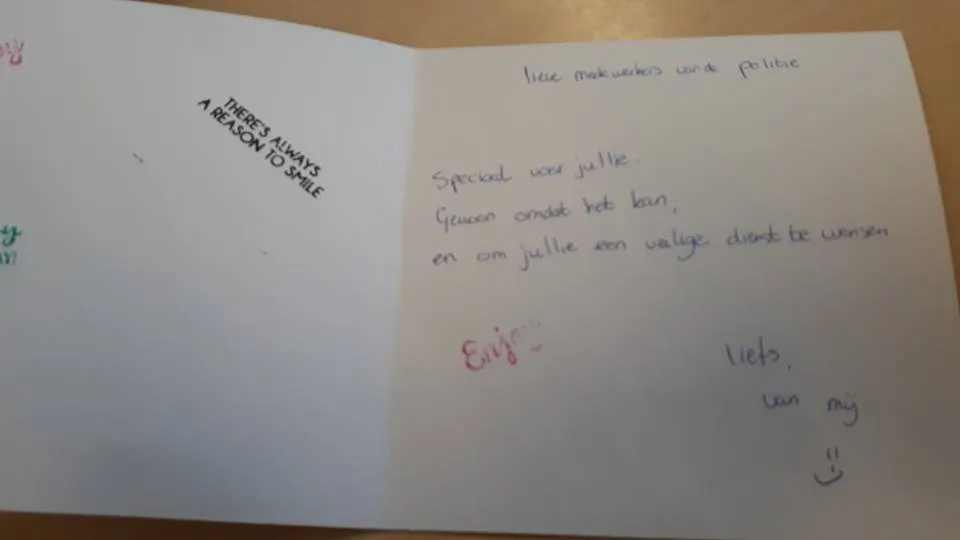 THERE'S ALWAYS
A REASON TO SMILE
lieve medewerkers van de politie
Speciaal voor jullie.
Gewoon omdat het kan,
en om jullie een veilige dienst te wensen
Enjoy
liefs,
van mij